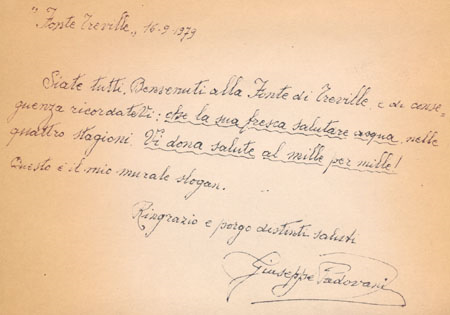 "Fonte Treville„ 16-9-1979
Siate tutti, Benvenuti alla Fonte di Treville, e di conse-
guenza ricordatevi: che la sua fresca salutare acqua, nelle
quattro stagioni. Vi dona salute al mille per mille!
Questo è il mio murale slogan.
Ringrazio e porgo distinti saluti
Giuseppe Padovani